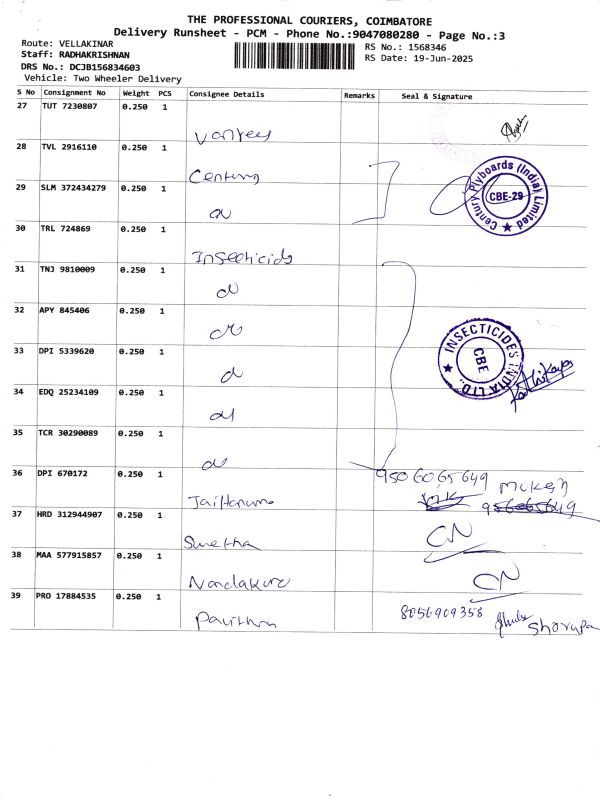 THE PROFESSIONAL COURIERS, COIMBATORE
Delivery Runsheet - PCM - Phone No.:9047080280 - Page No.:3
Route: VELLAKINAR
RS No.: 1568346
Staff: RADHAKRISHNAN
RS Date: 19-Jun-2025
DRS No.: DCJB156834603
Vehicle: Two Wheeler Delivery
S No Consignment No Weight PCS Consignee Details Remarks Seal & Signature
27 TUT 7230807 0.250 1
28 TVL 2916110 0.250 1 Century
Century Plyboards (India) Limited
CBE-29
29 SLM 372434279 0.250 1
30 TRL 724869 0.250 1 Insecticids
31 TNJ 9810009 0.250 1
32 APY 845406 0.250 1
33 DPI 5339620 0.250 1
INSECTICIDES INDIA LTD.
CBE
34 EDQ 25234109 0.250 1
Karthikaya
35 TCR 30290089 0.250 1
36 DPI 670172 0.250 1
9506065649 Mukesh
37 HRD 312944907 0.250 1 Swetha
38 MAA 577915857 0.250 1
39 PRO 17884535 0.250 1 Pavithra 8056909358